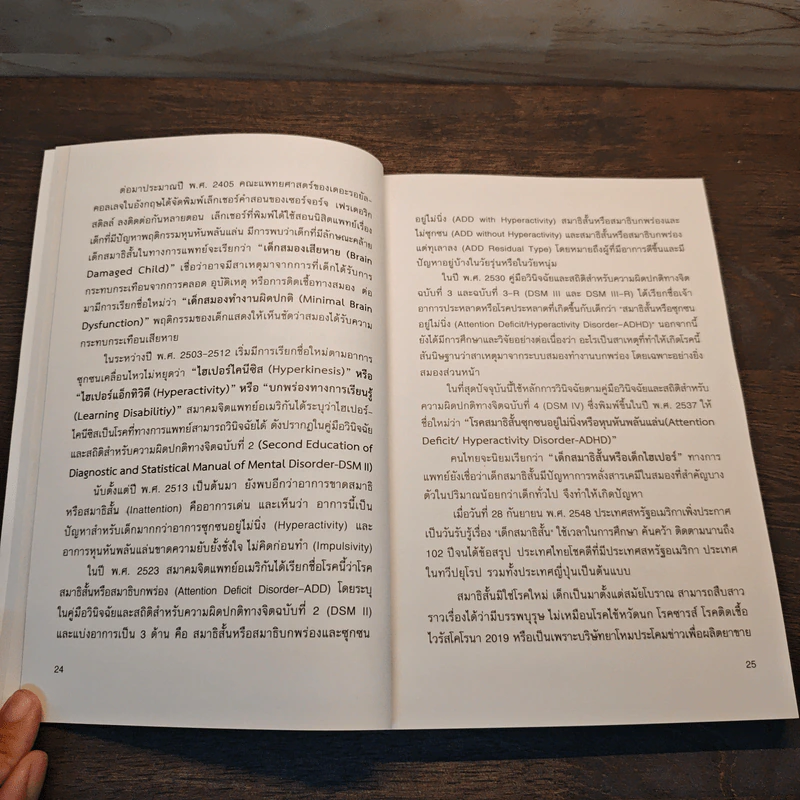 ต่อมาประมาณปี พ.ศ. 2405 คณะแพทยศาสตร์ของเดอะรอยัล-
คอลเลจในอังกฤษได้จัดพิมพ์เล็กเชอร์คำสอนของเซอร์จอร์จ เฟรเดอริก
สติลล์ ลงติดต่อกันหลายตอน เล็กเชอร์ที่พิมพ์ได้ใช้สอนนิสิตแพทย์เรื่อง
เด็กที่มีปัญหาพฤติกรรมหุนหันพลันแล่น มีการพบว่าเด็กที่มีลักษณะคล้าย
เด็กสมาธิสั้นในทางการแพทย์จะเรียกว่า “เด็กสมองเสียหาย (Brain
Damaged Child)” เชื่อว่าอาจมีสาเหตุมาจากการที่เด็กได้รับการ
กระทบกระเทือนจากการคลอด อุบัติเหตุ หรือการติดเชื้อทางสมอง ต่อ
มามีการเรียกชื่อใหม่ว่า “เด็กสมองทำงานผิดปกติ (Minimal Brain
Dysfunction)” พฤติกรรมของเด็กแสดงให้เห็นชัดว่าสมองได้รับความ
กระทบกระเทือนเสียหาย
ในระหว่างปี พ.ศ. 2503-2512 เริ่มมีการเรียกชื่อใหม่ตามอาการ
ซุกซนเคลื่อนไหวไม่หยุดว่า “ไฮเปอร์ไคนีซิส (Hyperkinesis)” หรือ
“ไฮเปอร์แอ็กทิวิตี (Hyperactivity)” หรือ “บกพร่องทางการเรียนรู้
(Learning Disabilitiy)” สมาคมจิตแพทย์อเมริกันได้ระบุว่าไฮเปอร์-
ไคนีซิสเป็นโรคที่ทางการแพทย์สามารถวินิจฉัยได้ ดังปรากฏในคู่มือวินิจฉัย
และสถิติสำหรับความผิดปกติทางจิตฉบับที่ 2 (Second Education of
Diagnostic and Statistical Manual of Mental Disorder-DSM II)
นับตั้งแต่ปี พ.ศ. 2513 เป็นต้นมา ยังพบอีกว่าอาการขาดสมาธิ
หรือสมาธิสั้น (Inattention) คืออาการเด่น และเห็นว่า อาการนี้เป็น
ปัญหาสำหรับเด็กมากกว่าอาการซุกซนอยู่ไม่นิ่ง (Hyperactivity) และ
อาการหุนหันพลันแล่นขาดความยับยั้งชั่งใจ ไม่คิดก่อนทำ (Impulsivity)
ในปี พ.ศ. 2523 สมาคมจิตแพทย์อเมริกันได้เรียกชื่อโรคนี้ว่าโรค
สมาธิสั้นหรือสมาธิบกพร่อง (Attention Deficit Disorder-ADD) โดยระบุ
ในคู่มือวินิจฉัยและสถิติสำหรับความผิดปกติทางจิตฉบับที่ 2 (DSM II)
และแบ่งอาการเป็น 3 ด้าน คือ สมาธิสั้นหรือสมาธิบกพร่องและซุกซน
24
อยู่ไม่นิ่ง (ADD with Hyperactivity) สมาธิสั้นหรือสมาธิบกพร่องและ
ไม่ซุกซน (ADD without Hyperactivity) และสมาธิสั้นหรือสมาธิบกพร่อง
แต่ทุเลาลง (ADD Residual Type) โดยหมายถึงผู้ที่มีอาการดีขึ้นและมี
ปัญหาอยู่บ้างในวัยรุ่นหรือในวัยหนุ่ม
ในปี พ.ศ. 2530 คู่มือวินิจฉัยและสถิติสำหรับความผิดปกติทางจิต
ฉบับที่ 3 และฉบับที่ 3-R (DSM III และ DSM III-R) ได้เรียกชื่อเจ้า
อาการประหลาดหรือโรคประหลาดที่เกิดขึ้นกับเด็กว่า “สมาธิสั้นหรือซุกซน
อยู่ไม่นิ่ง (Attention Deficit/Hyperactivity Disorder-ADHD)” นอกจากนี้
ยังได้มีการศึกษาและวิจัยอย่างต่อเนื่องว่า อะไรเป็นสาเหตุที่ทำให้เกิดโรคนี้
สันนิษฐานว่าสาเหตุมาจากระบบสมองทำงานบกพร่อง โดยเฉพาะอย่างยิ่ง
สมองส่วนหน้า
ในที่สุดปัจจุบันนี้ใช้หลักการวินิจฉัยตามคู่มือวินิจฉัยและสถิติสำหรับ
ความผิดปกติทางจิตฉบับที่ 4 (DSM IV) ซึ่งพิมพ์ขึ้นในปี พ.ศ. 2537 ให้
ชื่อใหม่ว่า “โรคสมาธิสั้นซุกซนอยู่ไม่นิ่งหรือหุนหันพลันแล่น(Attention
Deficit/ Hyperactivity Disorder-ADHD)”
คนไทยจะนิยมเรียกว่า “เด็กสมาธิสั้นหรือเด็กไฮเปอร์” ทางการ
แพทย์ยังเชื่อว่าเด็กสมาธิสั้นมีปัญหาการหลั่งสารเคมีในสมองที่สำคัญบาง
ตัวในปริมาณน้อยกว่าเด็กทั่วไป จึงทำให้เกิดปัญหา
เมื่อวันที่ 28 กันยายน พ.ศ. 2548 ประเทศสหรัฐอเมริกาเพิ่งประกาศ
เป็นวันรับรู้เรื่อง ‘เด็กสมาธิสั้น’ ใช้เวลาในการศึกษา ค้นคว้า ติดตามนานถึง
102 ปีจนได้ข้อสรุป ประเทศไทยโชคดีที่มีประเทศสหรัฐอเมริกา ประเทศ
ในทวีปยุโรป รวมทั้งประเทศญี่ปุ่นเป็นต้นแบบ
สมาธิสั้นมิใช่โรคใหม่ เด็กเป็นมาตั้งแต่สมัยโบราณ สามารถสืบสาว
ราวเรื่องได้ว่ามีบรรพบุรุษ ไม่เหมือนโรคไข้หวัดนก โรคซารส์ โรคติดเชื้อ
ไวรัสโคโรนา 2019 หรือเป็นเพราะบริษัทยาโหมประโคมข่าวเพื่อผลิตยาขาย
25